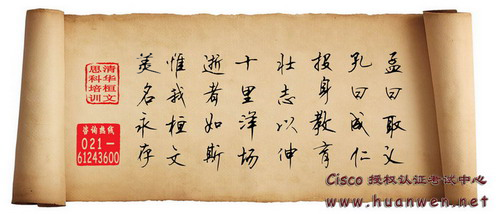 孟曰取义
孔曰成仁
投身教育
壮志以伸
十里洋场
逝者如斯
惟我桓文
美名永存
清华桓文
思科培训
咨询热线
021-
61243600
Cisco 授权认证考试中心
www.huanwen.net